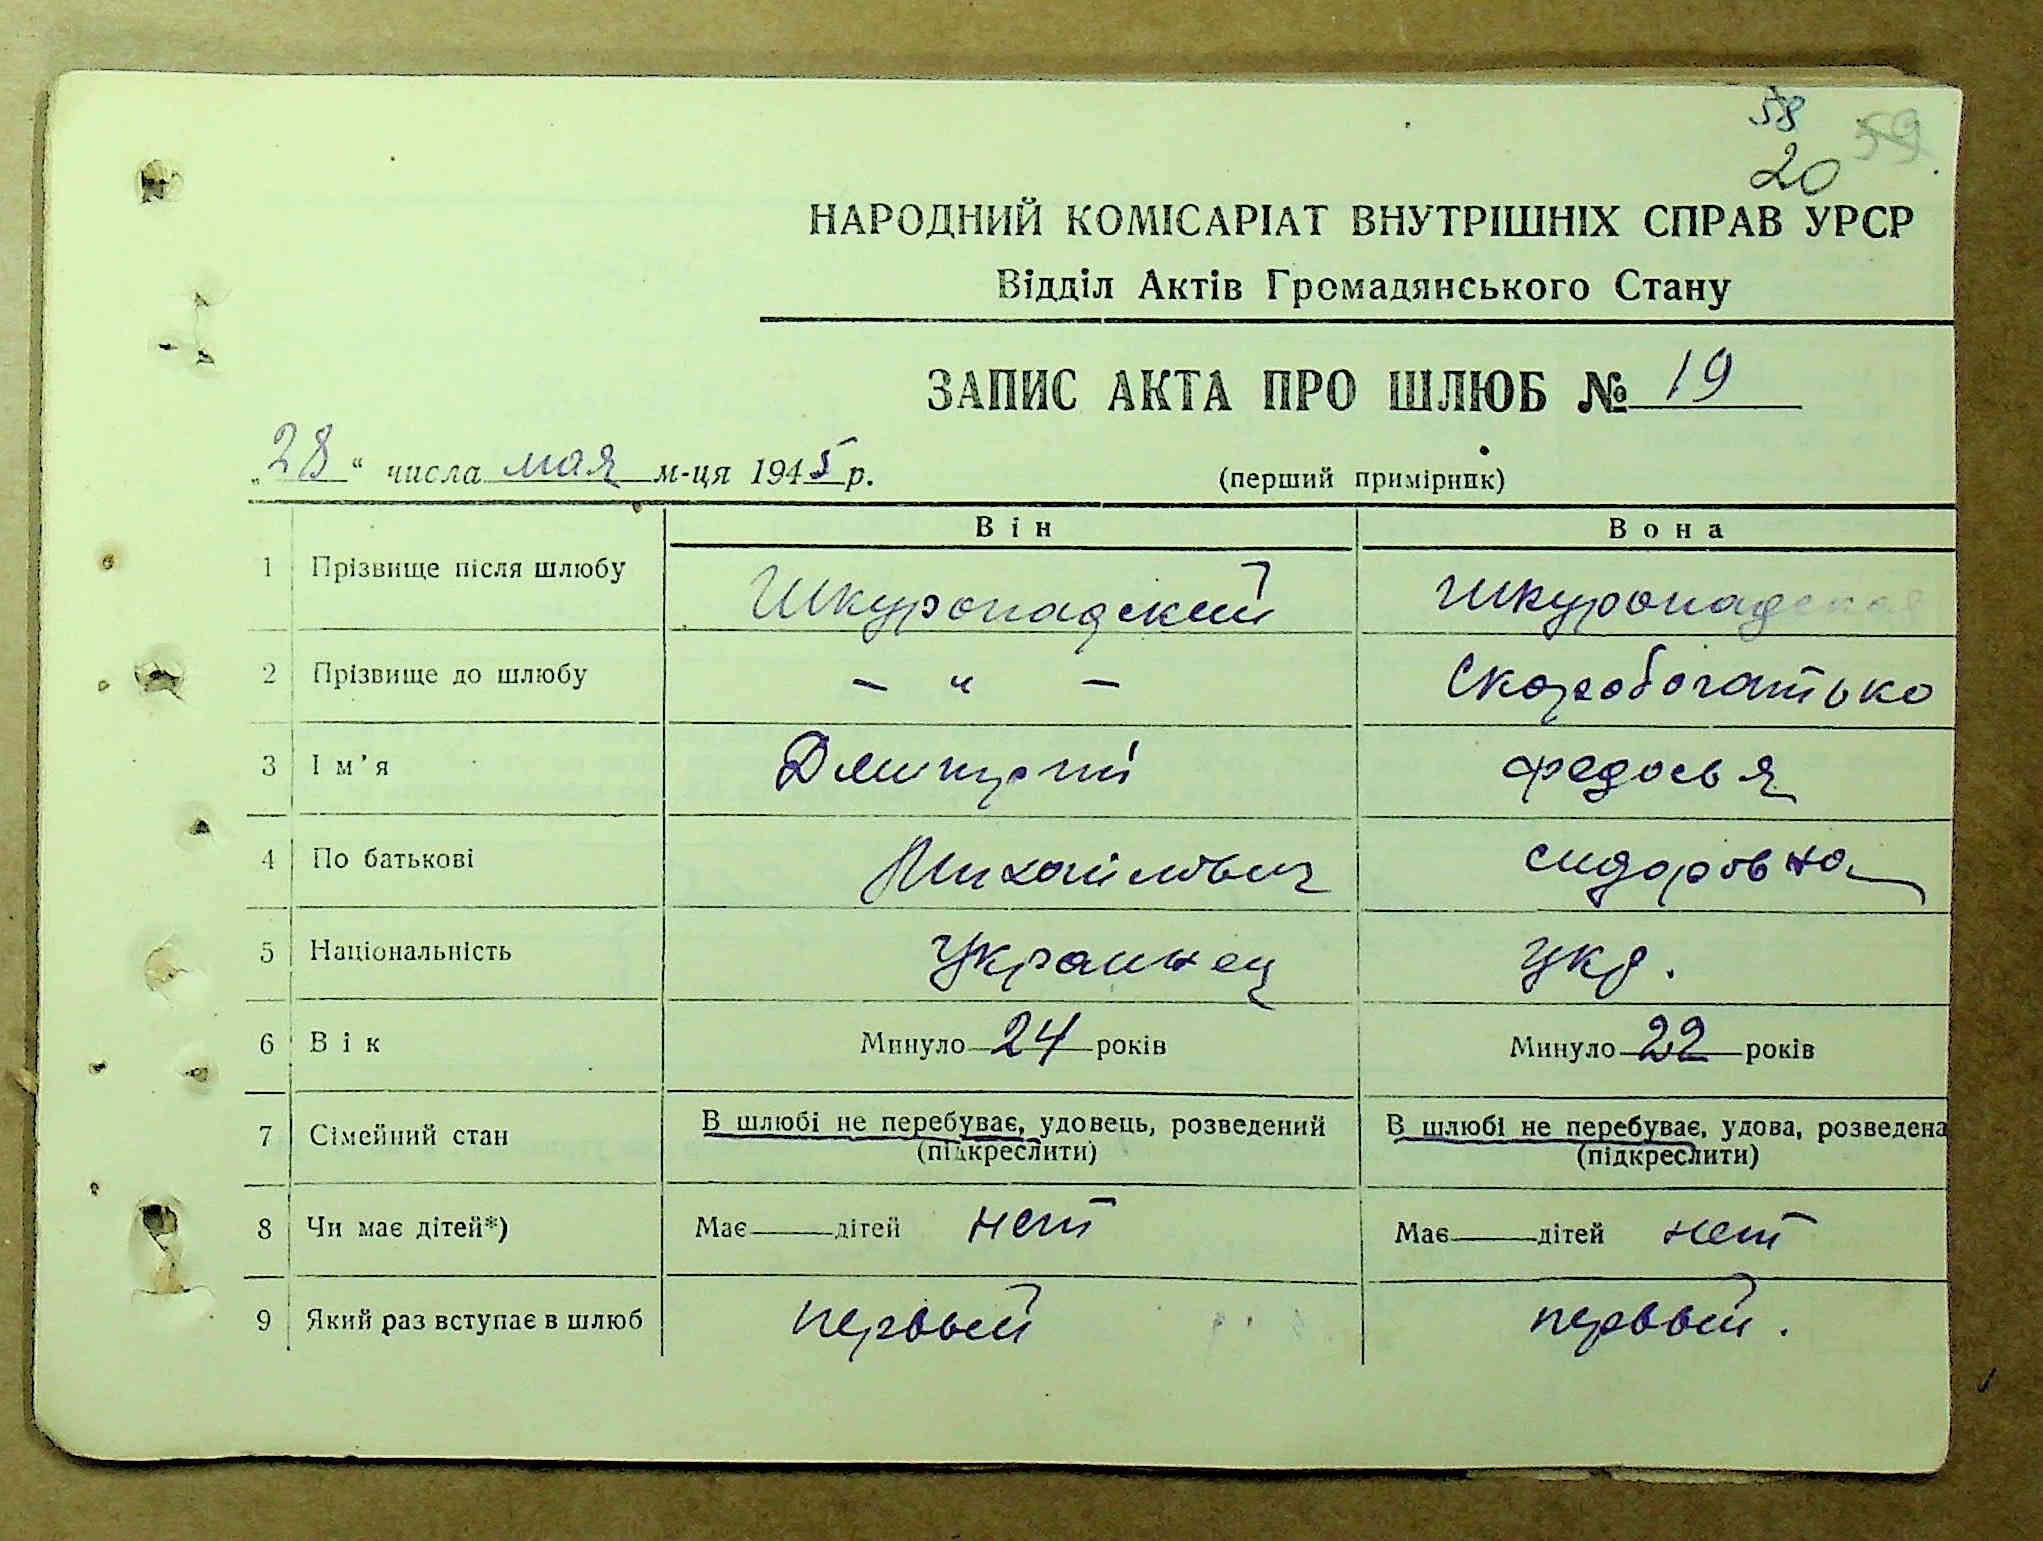 58
59
20
НАРОДНИЙ КОМІСАРІАТ ВНУТРІШНІХ СПРАВ УРСР
Відділ Актів Громадянського Стану
ЗАПИС АКТА ПРО ШЛЮБ № 19
„28“ числа мая м-ця 1945 р.
(перший примірник)
Він Вона
1 Прізвище після шлюбу Шкуропадский Шкуропадская
2 Прізвище до шлюбу — " — Скоробогатько
3 Ім’я Дмитрий федосья
4 По батькові Михайлович сидоровна
5 Національність Украинец укр.
6 Вік Минуло 24 років Минуло 22 років
7 Сімейний стан В шлюбі не перебуває, удовець, розведений (підкреслити) В шлюбі не перебуває, удова, розведена (підкреслити)
8 Чи має дітей*) Має — дітей нет Має — дітей нет
9 Який раз вступає в шлюб первый первый.